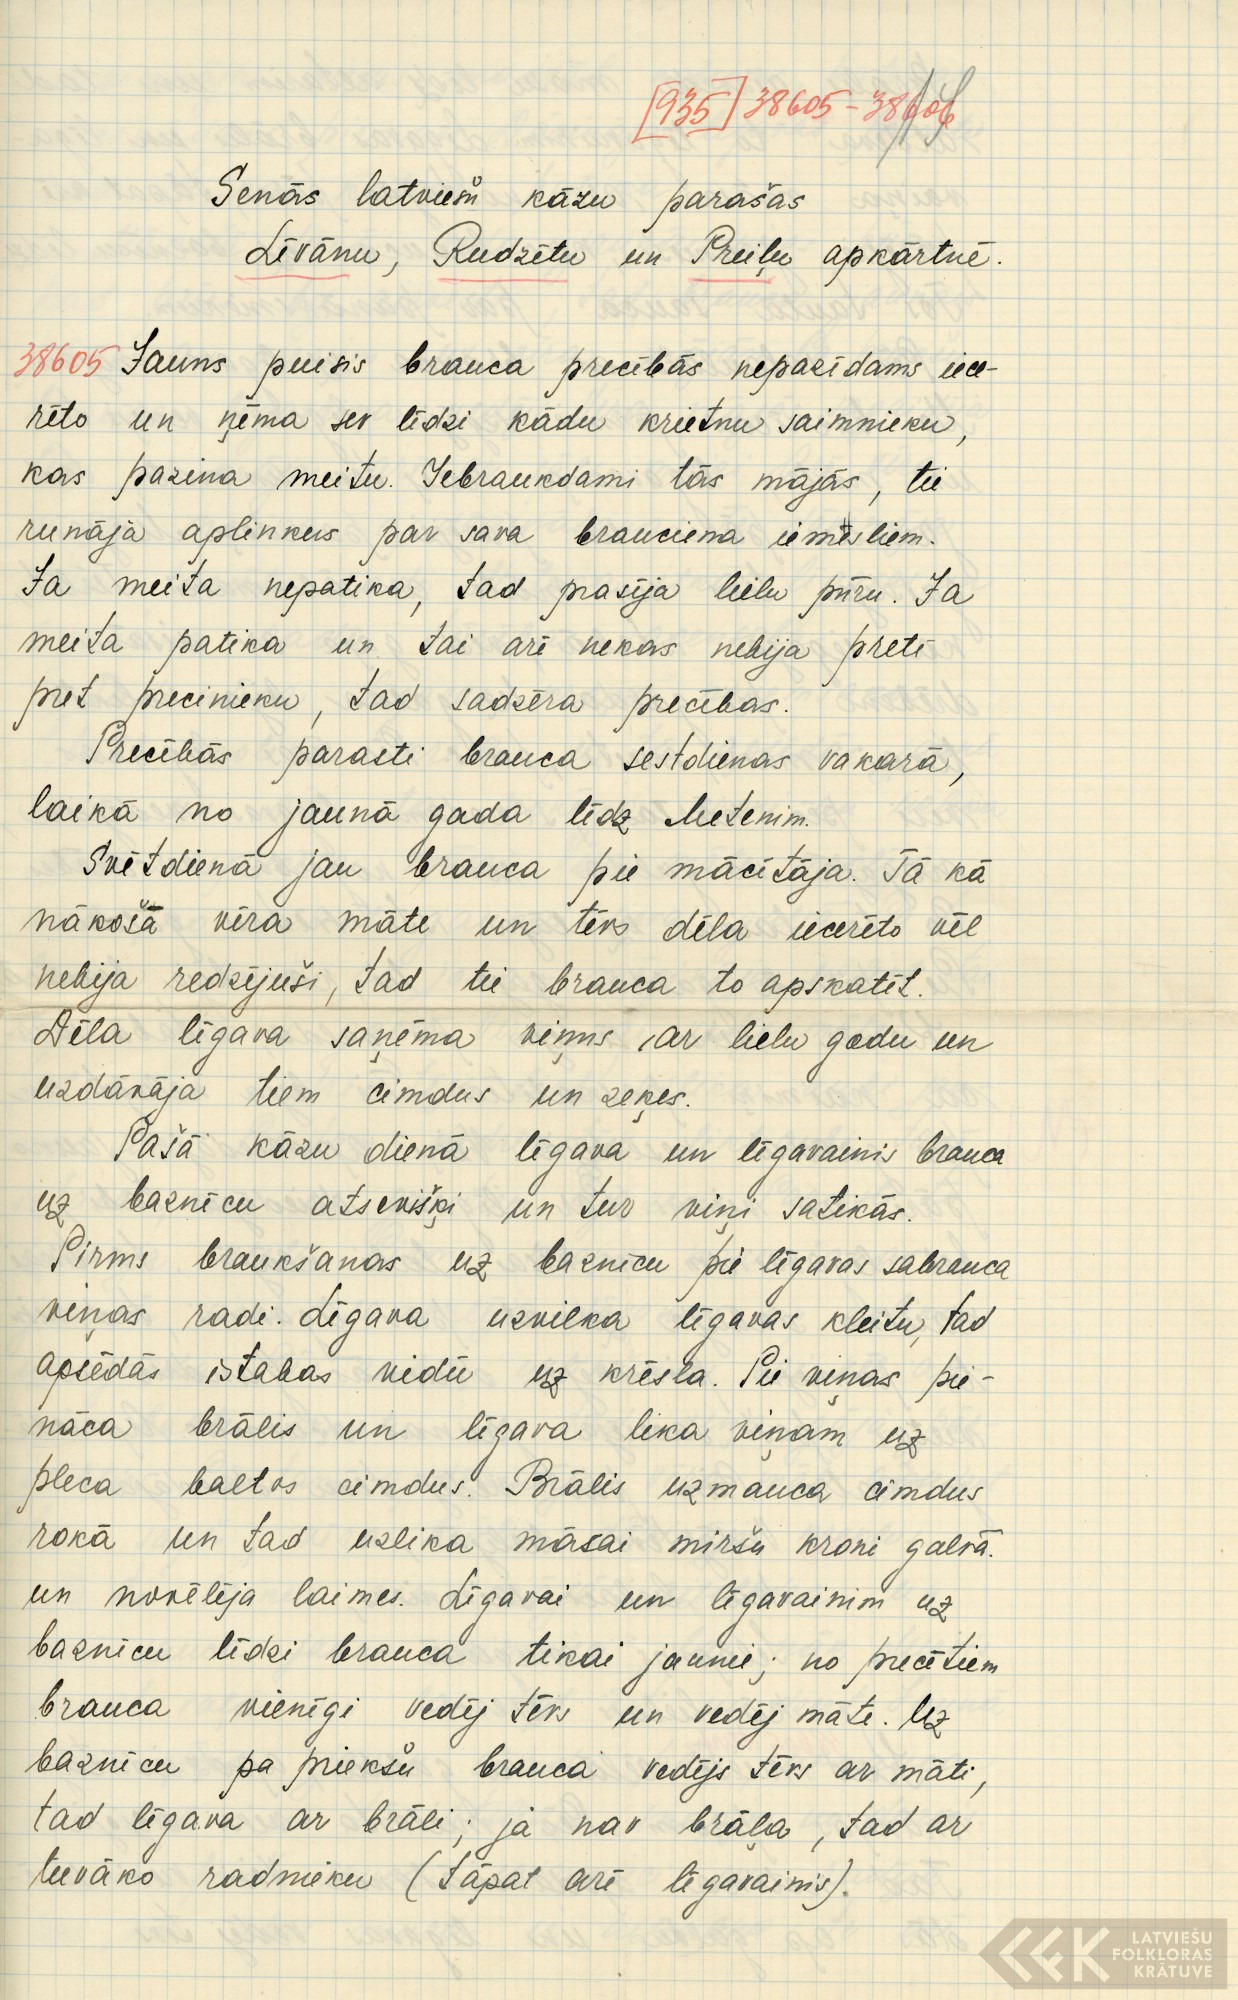 [935] 38605 - 38606
Senās latviešu kāzu parašas
Līvānu, Rudzētu un Preiļu apkārtnē.
38605 Jauns puisis brauca precībās nepazīdams iece-
rēto un ņēma sev līdzi kādu krietnu saimnieku,
kas pazina meitu. Iebraukdami tās mājās, tie
runāja aplinkus par sava brauciena iemēsliem.
Ja meita nepatika, tad prasīja lielu pūru. Ja
meita patika un tai arī nekas nebija pretī
pret precinieku, tad sadzēra precības.
Precībās parasti brauca sestdienas vakarā,
laikā no jaunā gada līdz Metenim.
Svētdienā jau brauca pie mācītāja. Tā kā
nākošā vīra māte un tēvs dēla iecerēto vēl
nebija redzējuši, tad tie brauca to apskatīt.
Dēla līgava saņēma viņus ar lielu godu un
uzdāvāja tiem cimdus un zeķes.
Pašā kāzu dienā līgava un līgavainis brauca
uz baznīcu atsevišķi un tur viņi satikās.
Pirms braukšanas uz baznīcu pie līgavas sabrauca
viņas radi. Līgava uzvilka līgavas kleitu, tad
apsēdās istabas vidū uz krēsla. Pie viņas pie-
nāca brālis un līgava lika viņam uz
pleca baltos cimdus. Brālis uzmauca cimdus
rokā un tad uzlika māsai miršu kroni galvā.
un novēlēja laimes. Līgavai un līgavainim uz
baznīcu līdzi brauca tikai jaunie; no precētiem
brauca vienīgi vedēj tēvs un vedēj māte. Uz
baznīcu pa priekšu brauca vedējs tēvs ar māti,
tad līgava ar brāli; ja nav brāļa, tad ar
tuvāko radnieku (tāpat arī līgavainis).
LATVIEŠU
FOLKLORAS
KRĀTUVE